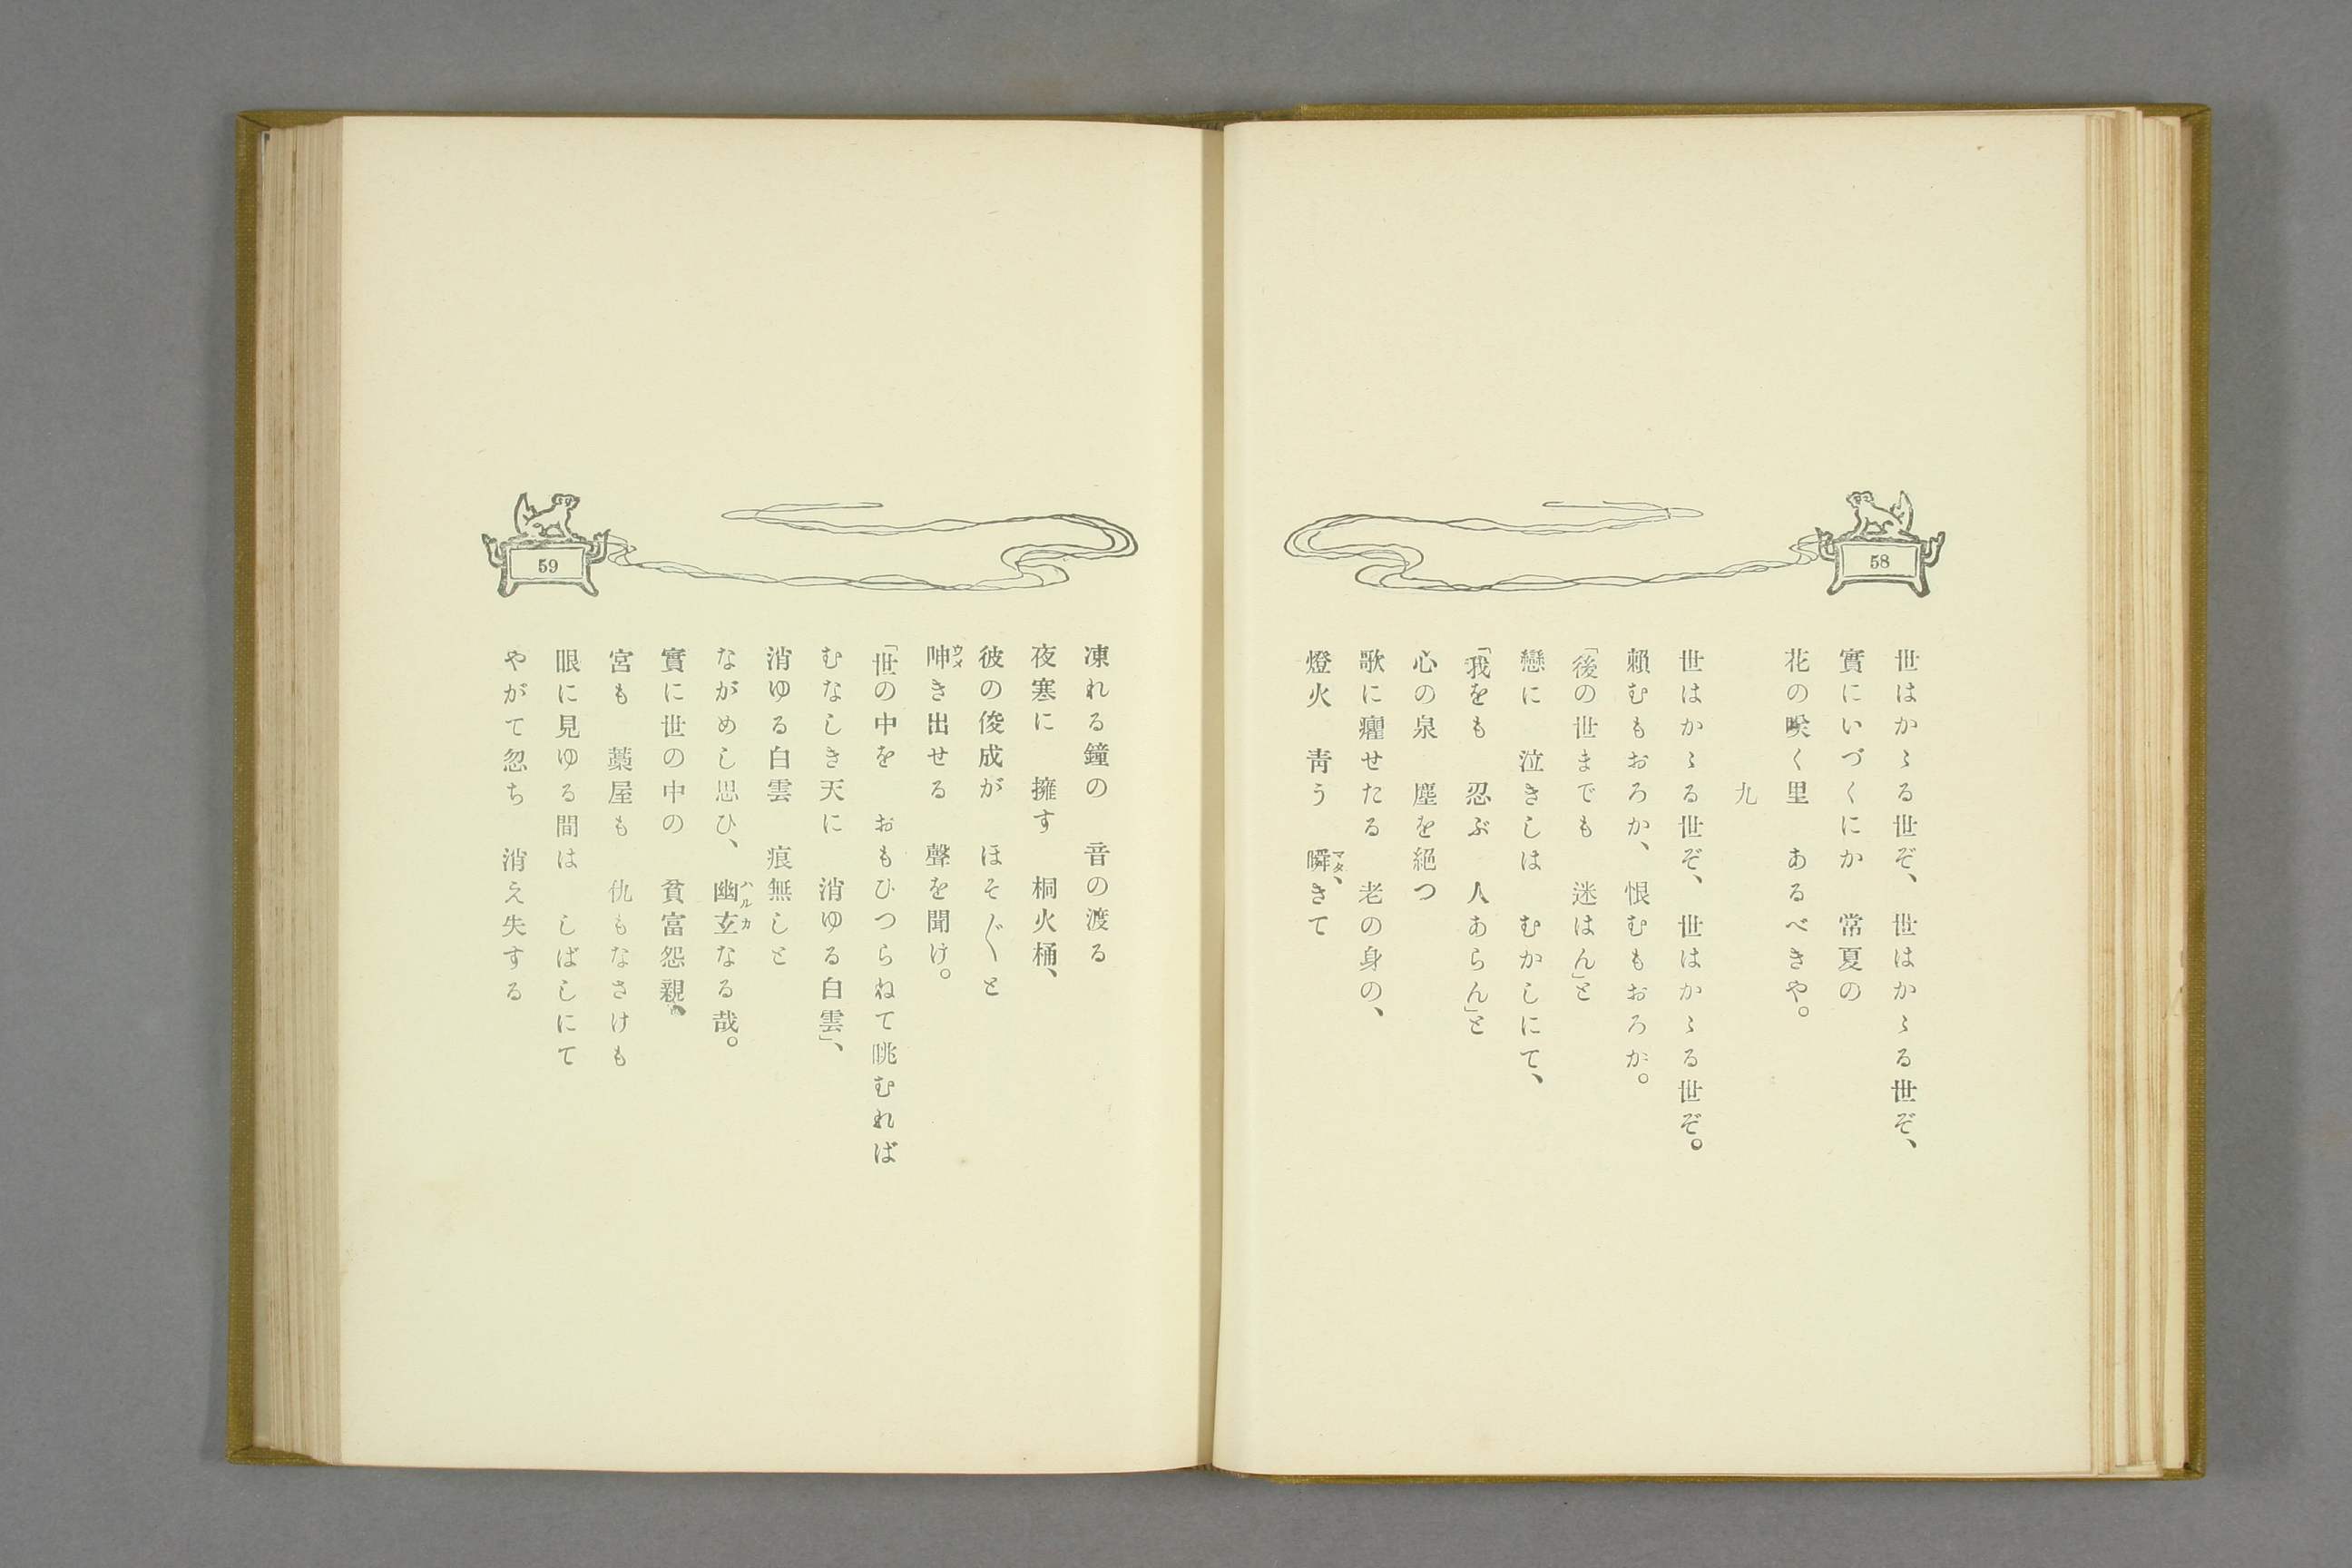 58
世はかゝる世ぞ、世はかゝる世ぞ、
實にいづくにか　常夏の
花の咲く里　あるべきや。
九
世はかゝる世ぞ、世はかゝる世ぞ。
賴むもおろか、恨むもおろか。
「後の世までも　迷はん」と
戀に　泣きしは　むかしにて、
「我をも　忍ぶ　人あらん」と
心の泉　塵を絕つ
歌に癯せたる　老の身の、
燈火　靑う　瞬きて
マタヽ
59
凍れる鐘の　音の渡る
夜寒に　擁す　桐火桶、
彼の俊成が　ほそ〴〵と
呻き出せる　聲を聞け。
ウメ
「世の中を　おもひつらねて眺むれば
むなしき天に　消ゆる白雲」、
消ゆる白雲　痕無しと
ながめし思ひ、幽玄なる哉。
ハルカ
實に世の中の　貧富怨親、
宮も　藁屋も　仇もなさけも
眼に見ゆる間は　しばしにて
やがて忽ち　消え失する